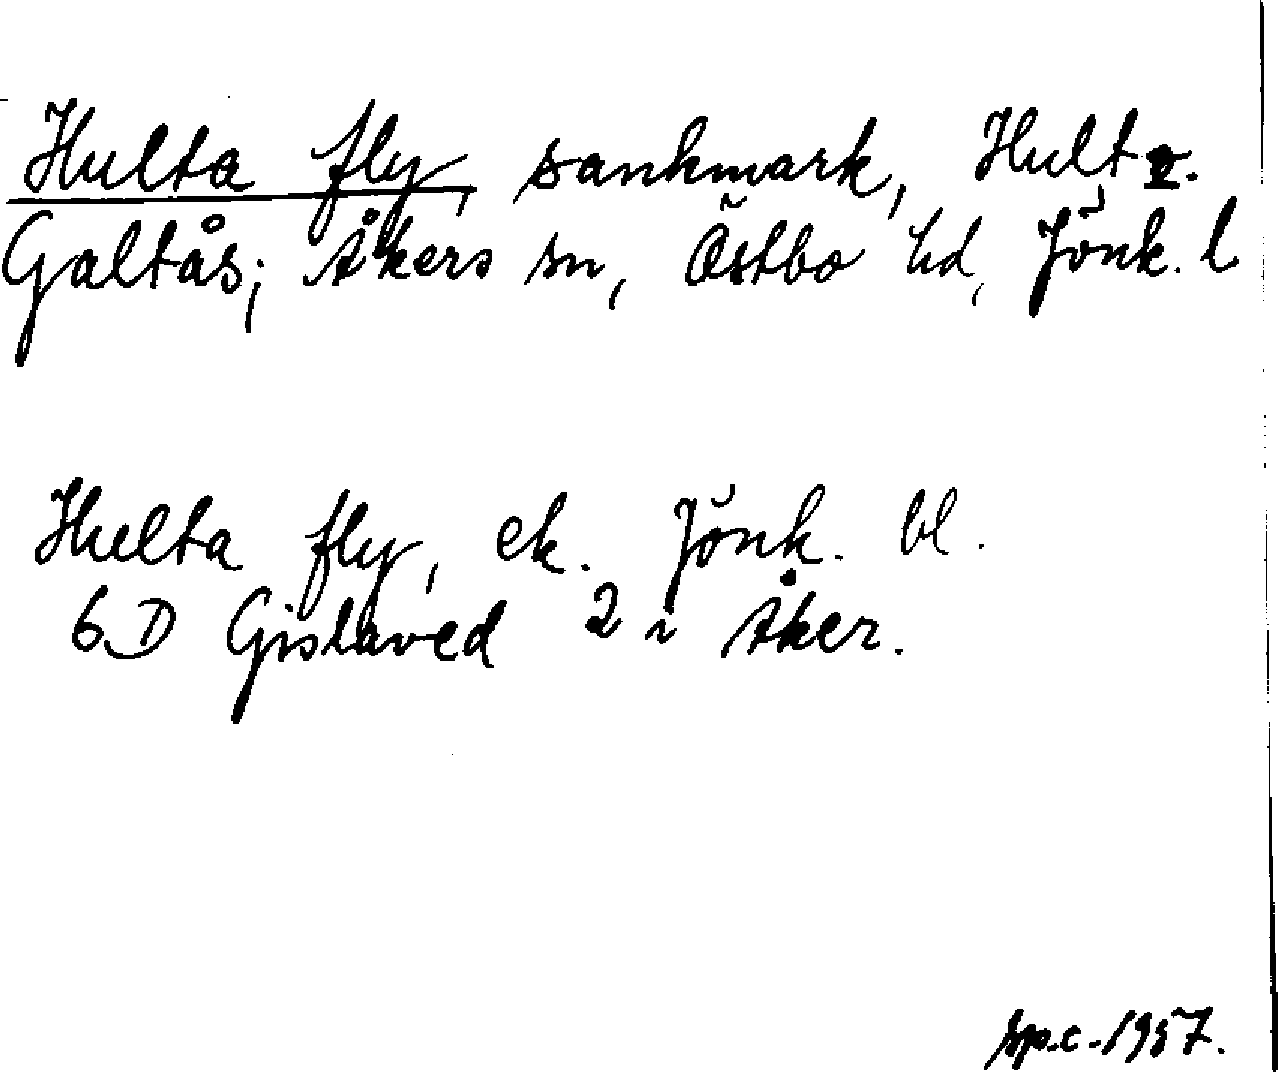 Hulta fly, sankmark, Hult o.
Galtås; Åkers sn, Östbo hd, Jönk. l
Hulta fly, ek. Jönk. bl.
6D Gislaved 2 i Åker.
sp.c. 1957.